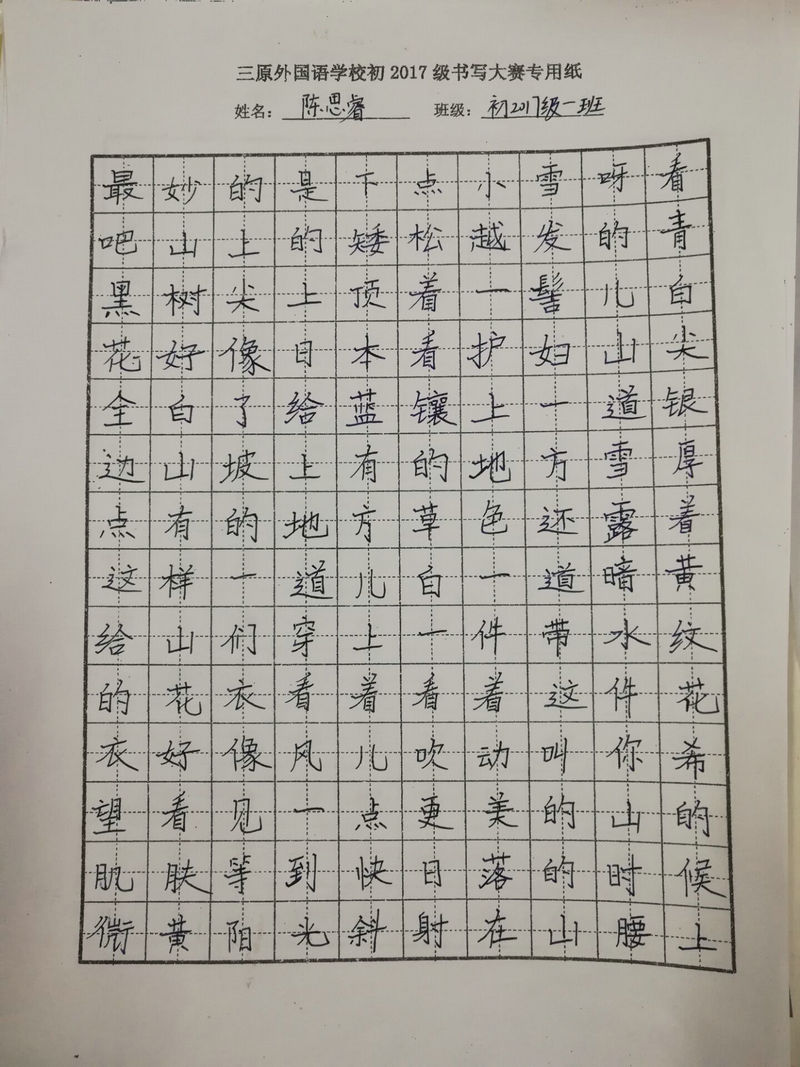 三原外国语学校初2017级书写大赛专用纸
姓名：陈思睿 班级：初2017级一班
最妙的是下点小雪呀看
吧山上的矮松越发的青
黑树尖上顶着一髻儿白
花好像日本看护妇山尖
全白了给蓝镶上一道银
边山坡上有的地方雪厚
点有的地方草色还露着
这样一道儿白一道暗黄
给山们穿上一件带水纹
的花衣看着看着这件花
衣好像风儿吹动叫你希
望看见一点更美的山的
肌肤等到快日落的时候
微黄阳光斜射在山腰上